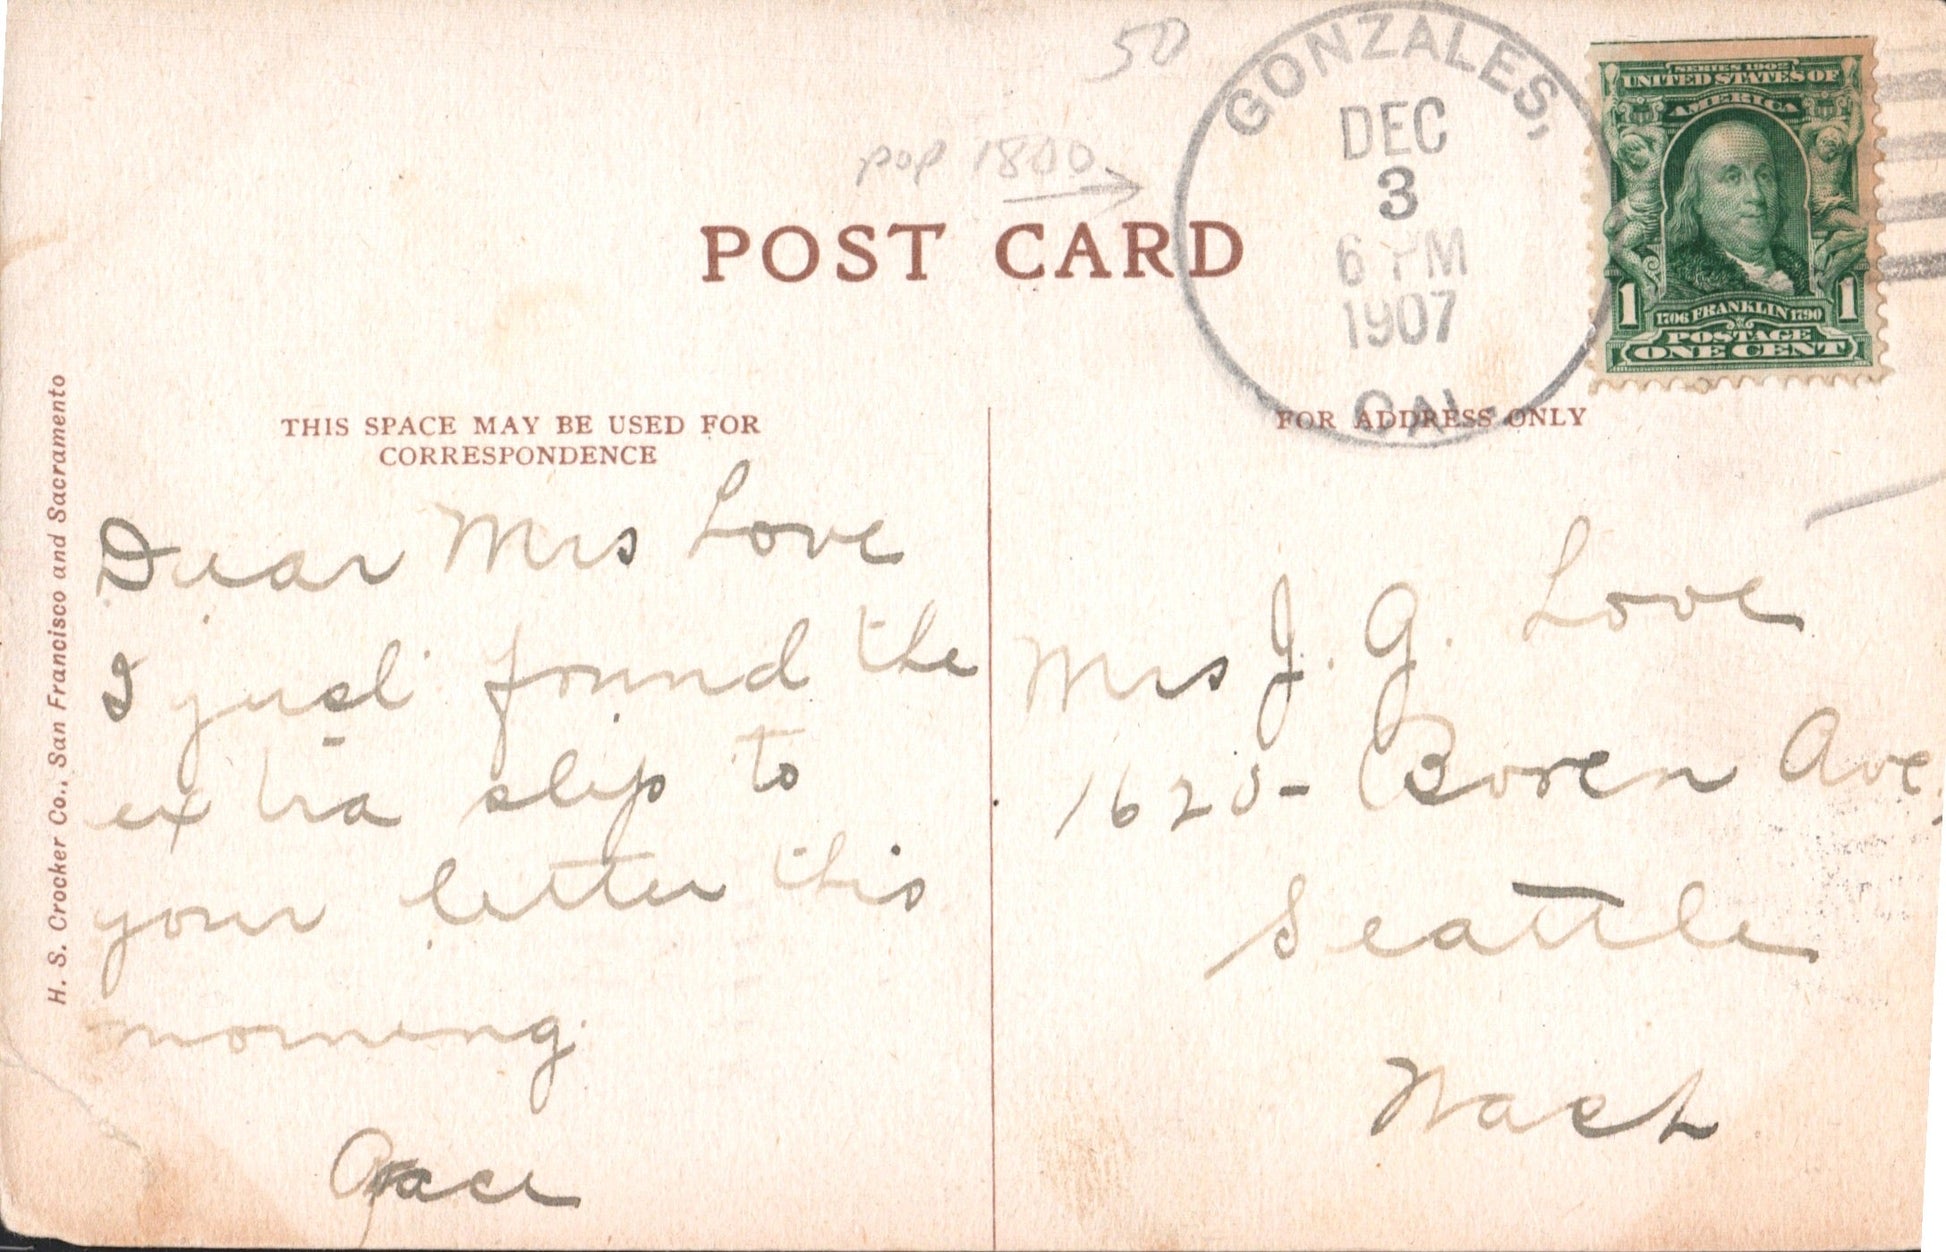 50
GONZALES,
DEC
3
6 PM
1907
CAL.
SERIES 1902
UNITED STATES OF
AMERICA
1706 FRANKLIN 1790
1 1
POSTAGE
ONE CENT
pop 1800
POST CARD
THIS SPACE MAY BE USED FOR
CORRESPONDENCE
FOR ADDRESS ONLY
H. S. Crocker Co., San Francisco and Sacramento
Dear Mrs Love
I just found the
extra slip to
your letter this
morning.
Mrs J. G. Love
Boren Ave.
Seattle
Wash